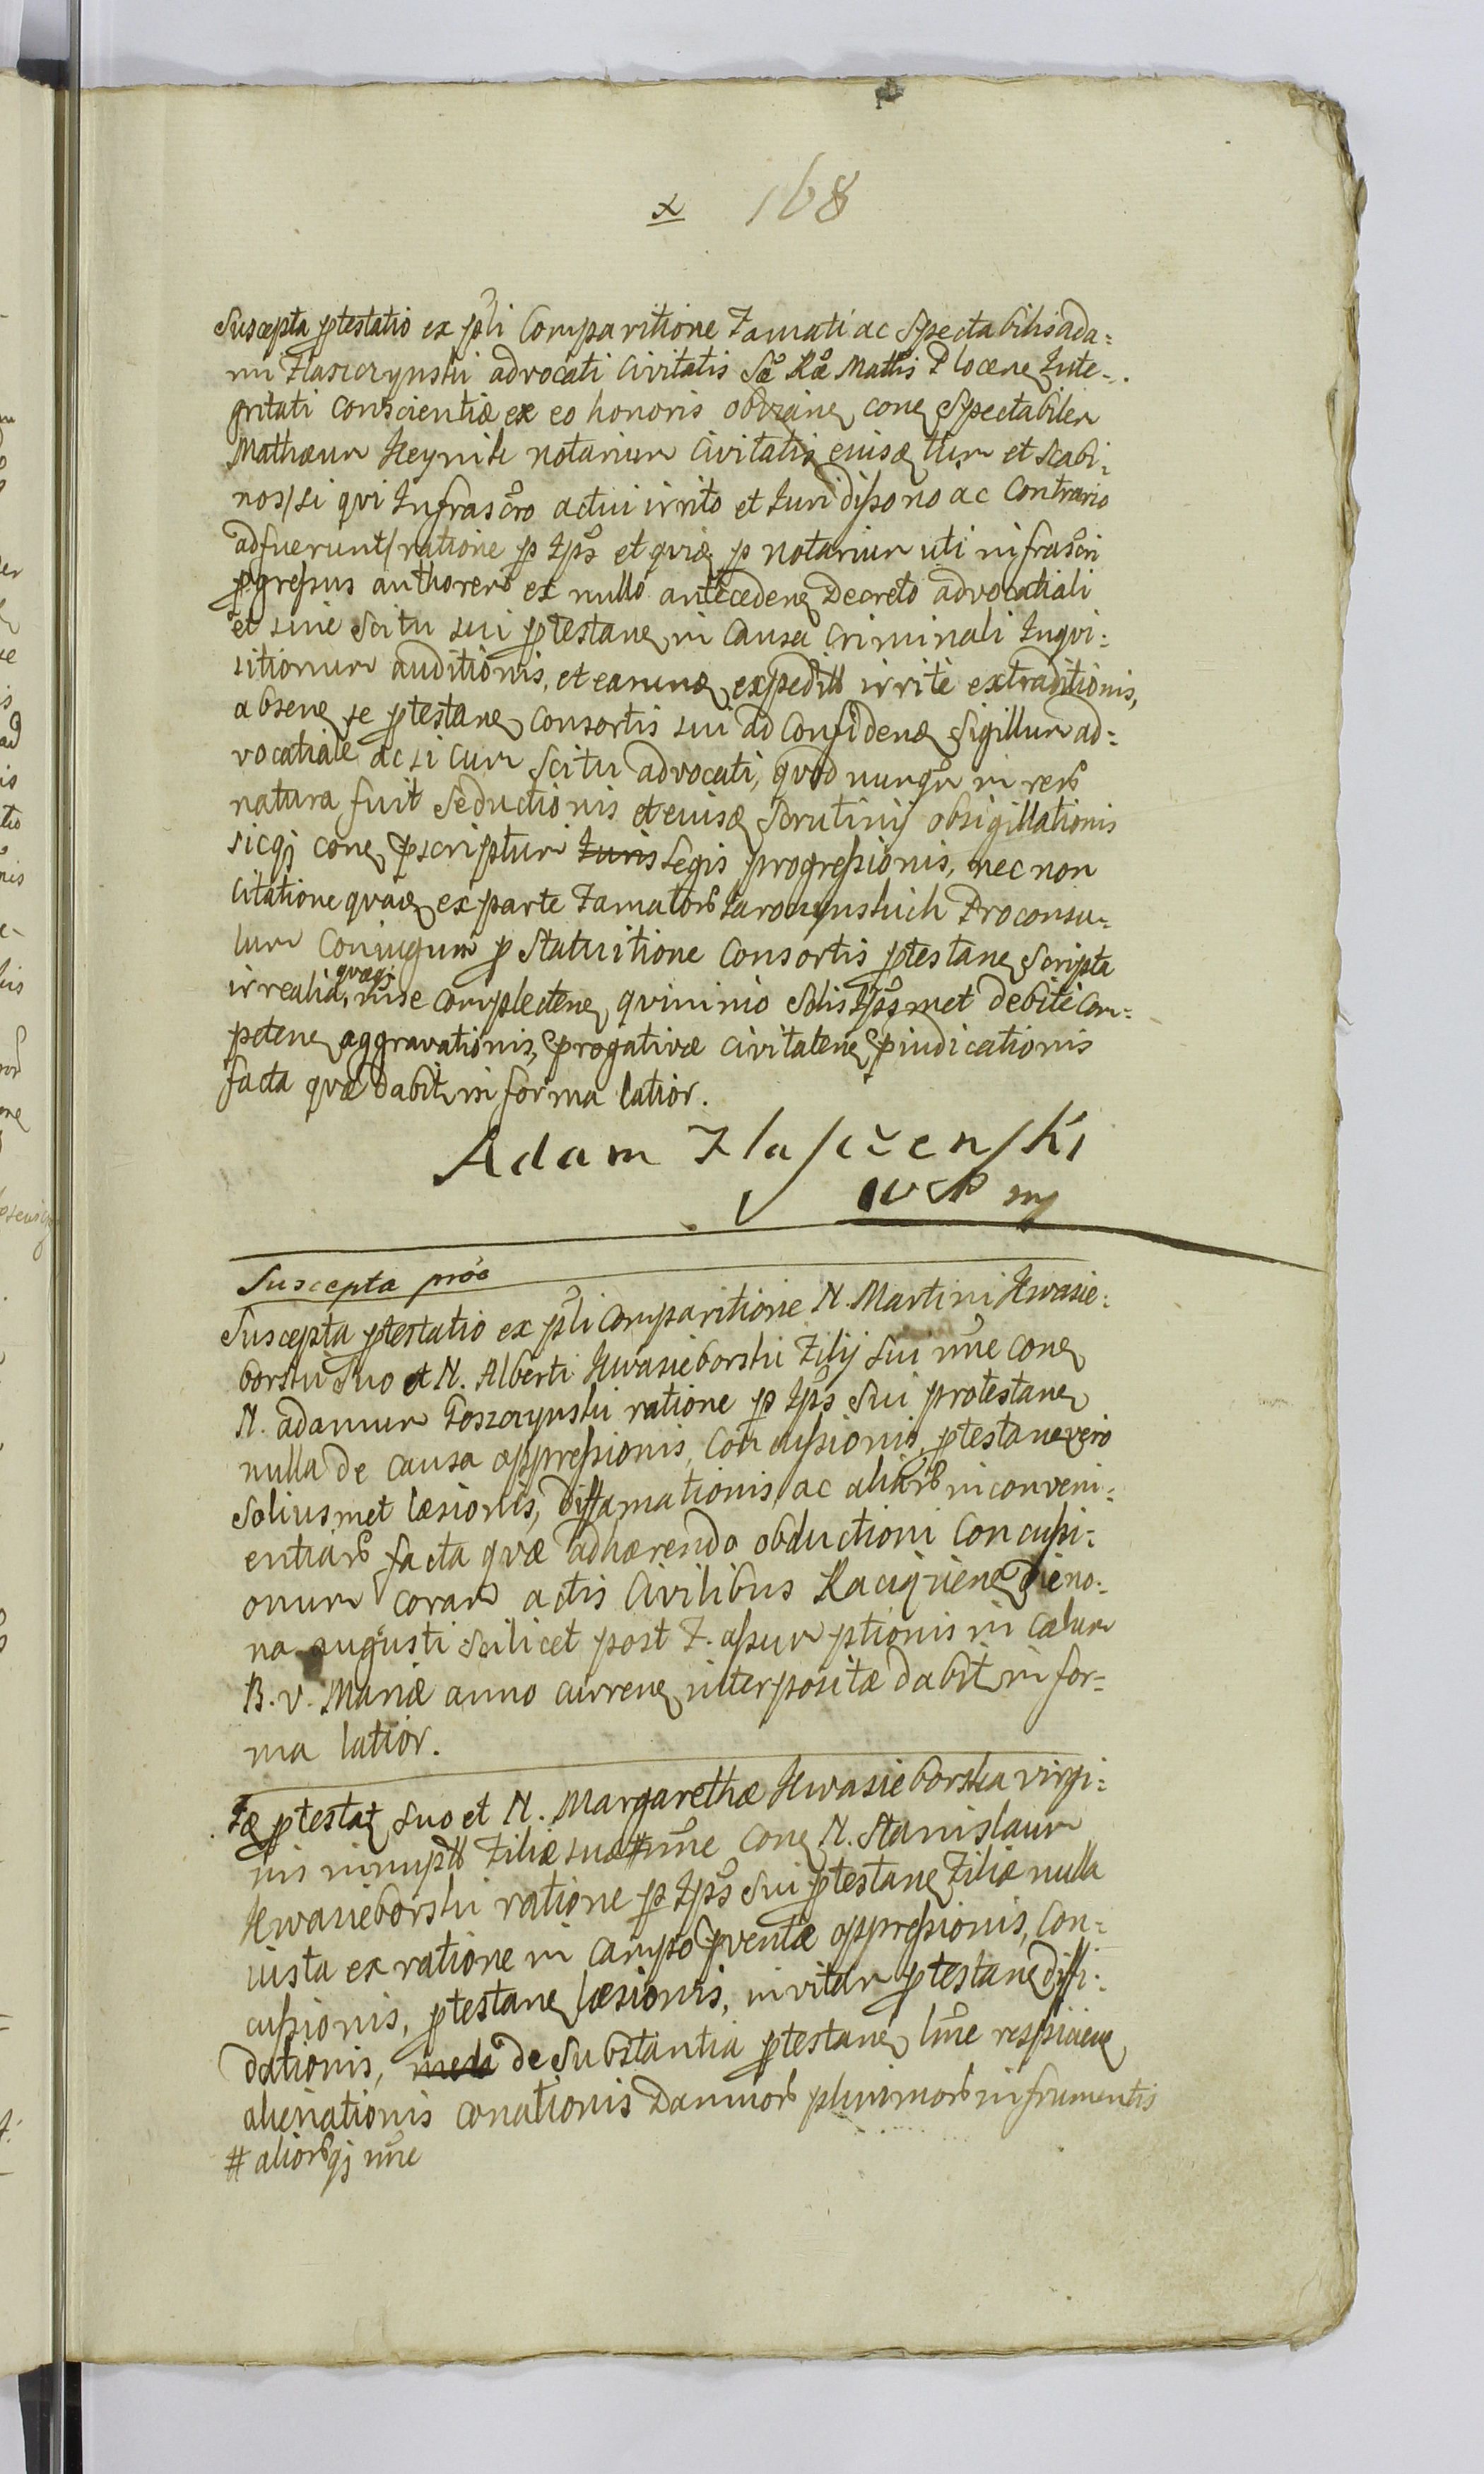 x 168
Suscepta ptestatio ex pli Comparitione Famati ac Spectabilis ada=
mi Flasczynski advocati Civitatis Sæ Ræ Mattis Plocen Inte=
gritati conscientiæ ex eo honoris obvian con Spectabilem
Mathæum Heynik notarium Civitatis eiusd tum et Scabi=
nos/si qui Infrascro actui irrito et Iuri dissono ac Contrario
adfuerunt/ratione p Ips et quid p notarium uti infrascri
pgressus authorem ex nullo antecedene Decreto advocatiali
et sine Scitu sui ptestane in Causa Criminali Inqvi=
sitionum auditionis, et earund expedit irrite extraditionis,
absene se ptestane Consortis sui ad Confidend Sigillum ad=
vocatiale ac si cum Scitu advocati, qvod nunqm in rer
natura fuit Seductionis et eiusd Scrutinij obsigillationis
sicqj cone pscriptum Iuris Legis progressionis, nec non
Citatione qvad ex parte Famator Jaroczynskich Proconsu=
lum Coniugum p Statuitione Consortis ptestane Scripta
irrealia, qvæqj mse complectene, qvinimo Solis Ipsmet debite Com=
petene aggravationis, progativæ civitatene pindicationis
facta qvæ dabit in forma latior.
Adam Flasczenski
WP mp
Suscepta proc
Suscepta ptestatio ex pli Comparitione N. Martini Kwasie=
borski Suo et N. Alberti Kwasieborski Filij Sui nne cone
N. adamum Goszczynski ratione p Ips Sui protestane
nulla de causa oppressionis, Concussionis, ptestane vero
Soliusmet læsionis, diffamationis, ac aliar inconveni=
entiar facta qvæ adhærendo obductioni Concussi=
onum coram actis Civilibus Raciąziene die no=
na augusti scilicet post F. assumptionis in Cælum
B. V. Mariæ anno currene interpositæ dabit in for=
ma latior.
Id ptestat Suo et N. Margarethæ Kwasieborska virgi=
nis innupt Filiæ suæ # nne cone N. Stanislaum
Kwasieborski ratione p Ips Sui ptestane Filiæ nulla
iusta ex ratione in campo pventæ oppressionis, Con=
cussionis, ptestane læsionis, in vitam ptestane diffi=
dationis, de Substantia ptestane lme respiciene
alienationis conationis Damnor plurimor in frumentis
# aliorqj nne